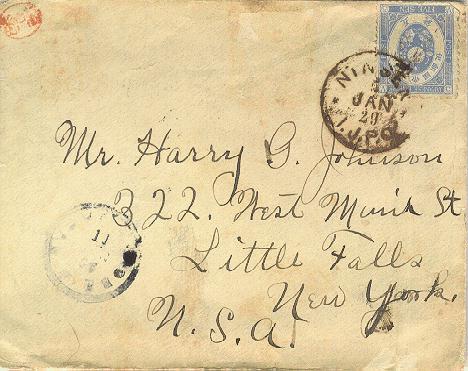 FIVE SEN
JAN
29
I.J.P.O.
Mr. Harry G. Johnson
322. West Main St
Little Falls
New York.
U.S.A.